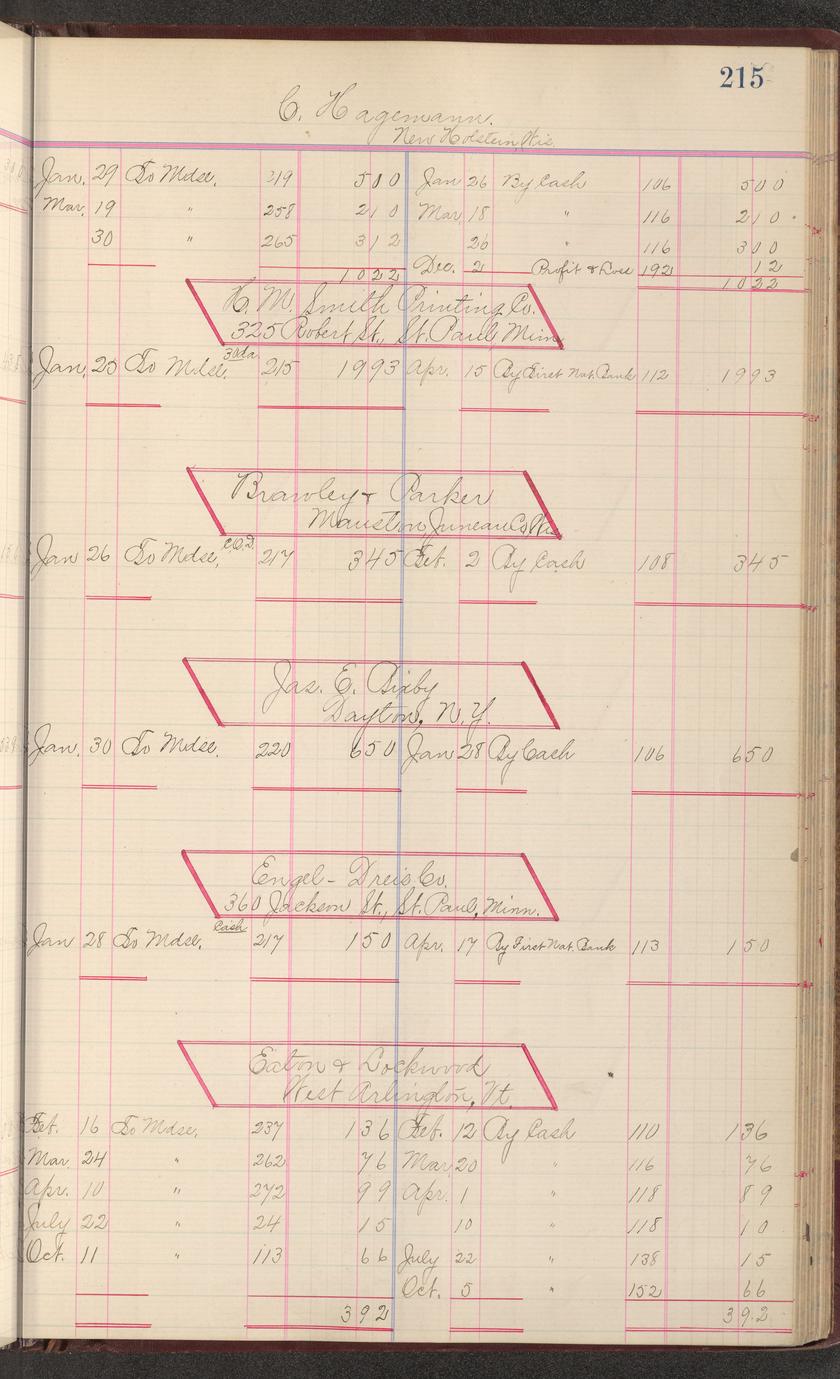 215
C. Hagemann.
New Holstein, Wis.
Jan. 29 To Mdse. 219 500 Jan 26 By Cash 106 500
Mar. 19 " 258 210 Mar 18 " 116 210
30 " 265 312 26 " 116 300
Dec. 2 Profit & Loss 192 12
1022 1022
H. M. Smith Printing Co.
325 Robert St., St. Paul, Minn
Jan. 25 To Mdse. 30da 215 1993 Apr. 15 By First Nat. Bank 112 1993
Brawley & Parker
Mauston Juneau Co Wis
Jan 26 To Mdse, C.O.D. 217 345 Feb. 2 By Cash 108 345
Jas. E. Bixby
Dayton, N.Y.
Jan. 30 To Mdse. 220 650 Jan 28 By Cash 106 650
Engel-Dreis Co.
360 Jackson St., St. Paul, Minn.
Jan 28 To Mdse. Cash 217 150 Apr. 17 By First Nat. Bank 113 150
Eaton & Lockwood
West Arlington, Vt.
Feb. 16 To Mdse. 237 136 Feb. 12 By Cash 110 136
Mar. 24 " 262 76 Mar 20 " 116 76
Apr. 10 " 272 99 Apr. 1 " 118 89
July 22 " 24 15 10 " 118 10
Oct. 11 " 113 66 July 22 " 138 15
Oct. 5 " 152 66
392 392